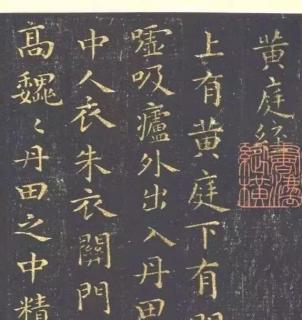 黄庭经
上有黄庭下有關
嘘吸廬外出入丹田
中人衣朱衣關門
高巍〻丹田之中精